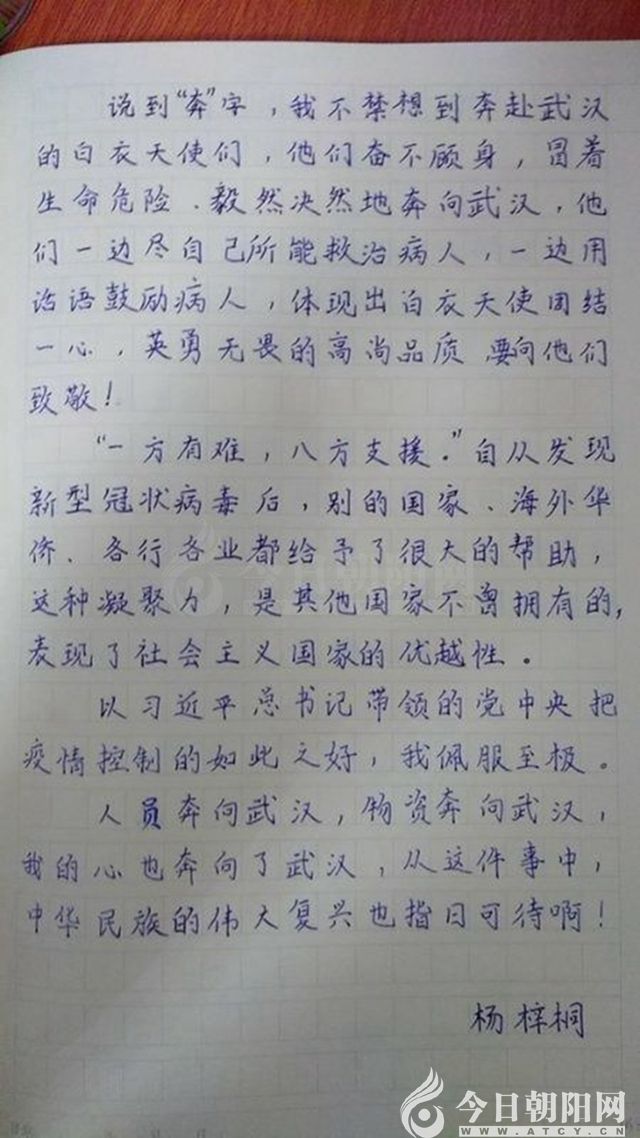 说到“奔”字，我不禁想到奔赴武汉
的白衣天使们，他们奋不顾身，冒着
生命危险、毅然决然地奔向武汉，他
们一边尽自己所能救治病人，一边用
话语鼓励病人，体现出白衣天使团结
一心，英勇无畏的高尚品质，要向他们
致敬！
“一方有难，八方支援。”自从发现
新型冠状病毒后，别的国家、海外华
侨、各行各业都给予了很大的帮助，
这种凝聚力，是其他国家不曾拥有的，
表现了社会主义国家的优越性。
以习近平总书记带领的党中央把
疫情控制的如此之好，我佩服至极。
人员奔向武汉，物资奔向武汉，
我的心也奔向了武汉，从这件事中，
中华民族的伟大复兴也指日可待啊！
杨梓桐
今日朝阳网
今日朝阳网
WWW.ATCY.CN